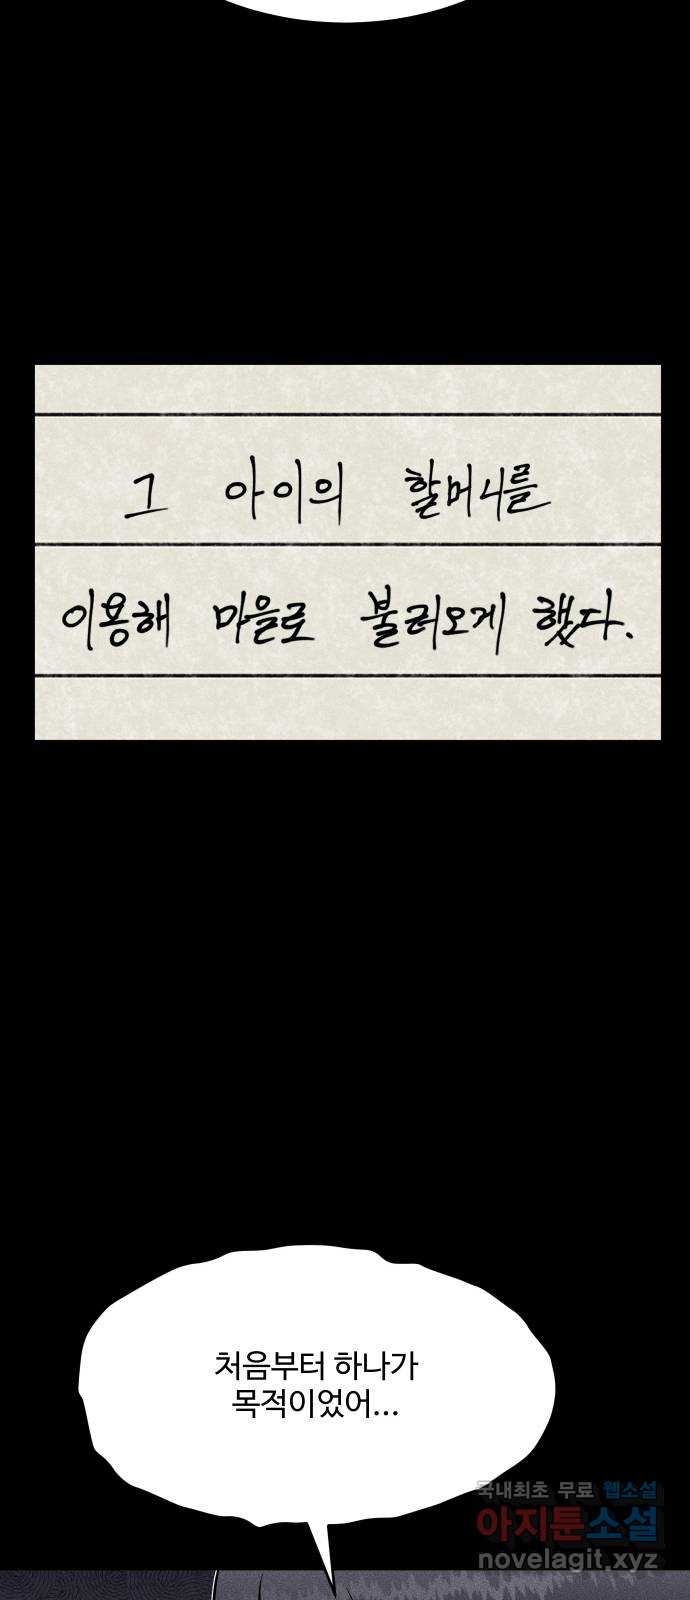 그 아이의 할머니를
이용해 마을로 불러오게 했다.
처음부터 하나가
목적이었어...
국내최초 무료 웹소설
아지툰소설
novelagit.xyz